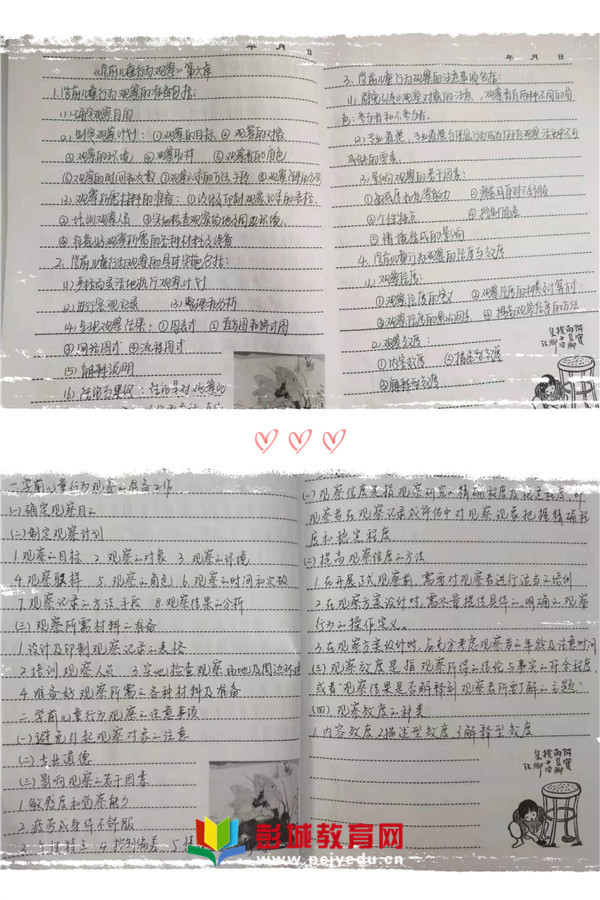 年 月 日
《学前儿童行为观察》第六章
1.学前儿童行为观察的准备包括:
(1).确定观察目的
(2).制定观察计划:①观察的目标 ②观察的对象
③观察的环境 ④观察取样 ⑤观察者的角色
⑥观察的时间和次数 ⑦观察记录的方法手段 ⑧观察结果的分析
(3).观察所需材料的准备:①设计及印制观察记录的表格
②培训观察人员 ③实地检查观察场地及周边环境
④准备好观察所需的各种材料及设备
2.学前儿童行为观察的具体实施包括:
(2)进行客观记录 (3)整理和分析
(4)呈现观察结果:①图表式 ②直方图和饼式图
③网络图式 ④流程图式
(5)解释说明
年 月 日
3.学前儿童行为观察的注意事项包括:
(1)避免引起观察对象的注意,观察者有两种不同的角
色:参与者和不参与者。
3.影响观察的若干因素:
①敏感度和洞察能力 ②疲劳或身体不舒服
③个性特点 ④控制偏差
⑤情境造成的影响
4.学前儿童行为观察的信度与效度
(1)观察信度:
①观察信度的含义 ②观察信度的种类以及计算方法
③观察信度的影响因素 ④提高观察信度的方法
(2)观察效度:
①内容效度 ②描述型效度
③解释型效度
一.学前儿童行为观察的准备工作
(一)确定观察目的
(二)制定观察计划
1.观察的目标 2.观察的对象 3.观察的环境
4.观察取样 5.观察的角色 6.观察的时间和次数
7.观察记录的方法手段 8.观察结果的分析
(三)观察所需材料的准备
1.设计及印制观察记录的表格
2.培训观察人员 3.实地检查观察场地及周边环境
4.准备好观察所需的各种材料及准备
二.学前儿童行为观察的注意事项
(一)避免引起观察对象的注意
(二)专业道德
(三)影响观察的若干因素
1.敏感度和洞察能力
2.疲劳或身体不舒服
3.个性特点 4.控制偏差 5.
(一)观察信度是指观察研究的精确程度及稳定程度,即
观察者在观察记录或评估中对观察现象把握精确程
度和稳定程度
(二)提高观察信度的方法
1.在开展正式观察前,需要对观察者进行适当的培训
2.在观察方案设计时,需尽量提供具体的、明确的观察
行为的操作定义。
3.在观察方案设计时,应充分考虑观察者的年龄及注意时间
(三)观察效度是指观察所得的结论与事实的符合程度,
或者"观察结果是否解释到观察者所要了解的主题"
(四)观察效度的种类
1.内容效度 2.描述型效度 3.解释型效度
彭城教育网
www.pejyedu.cn